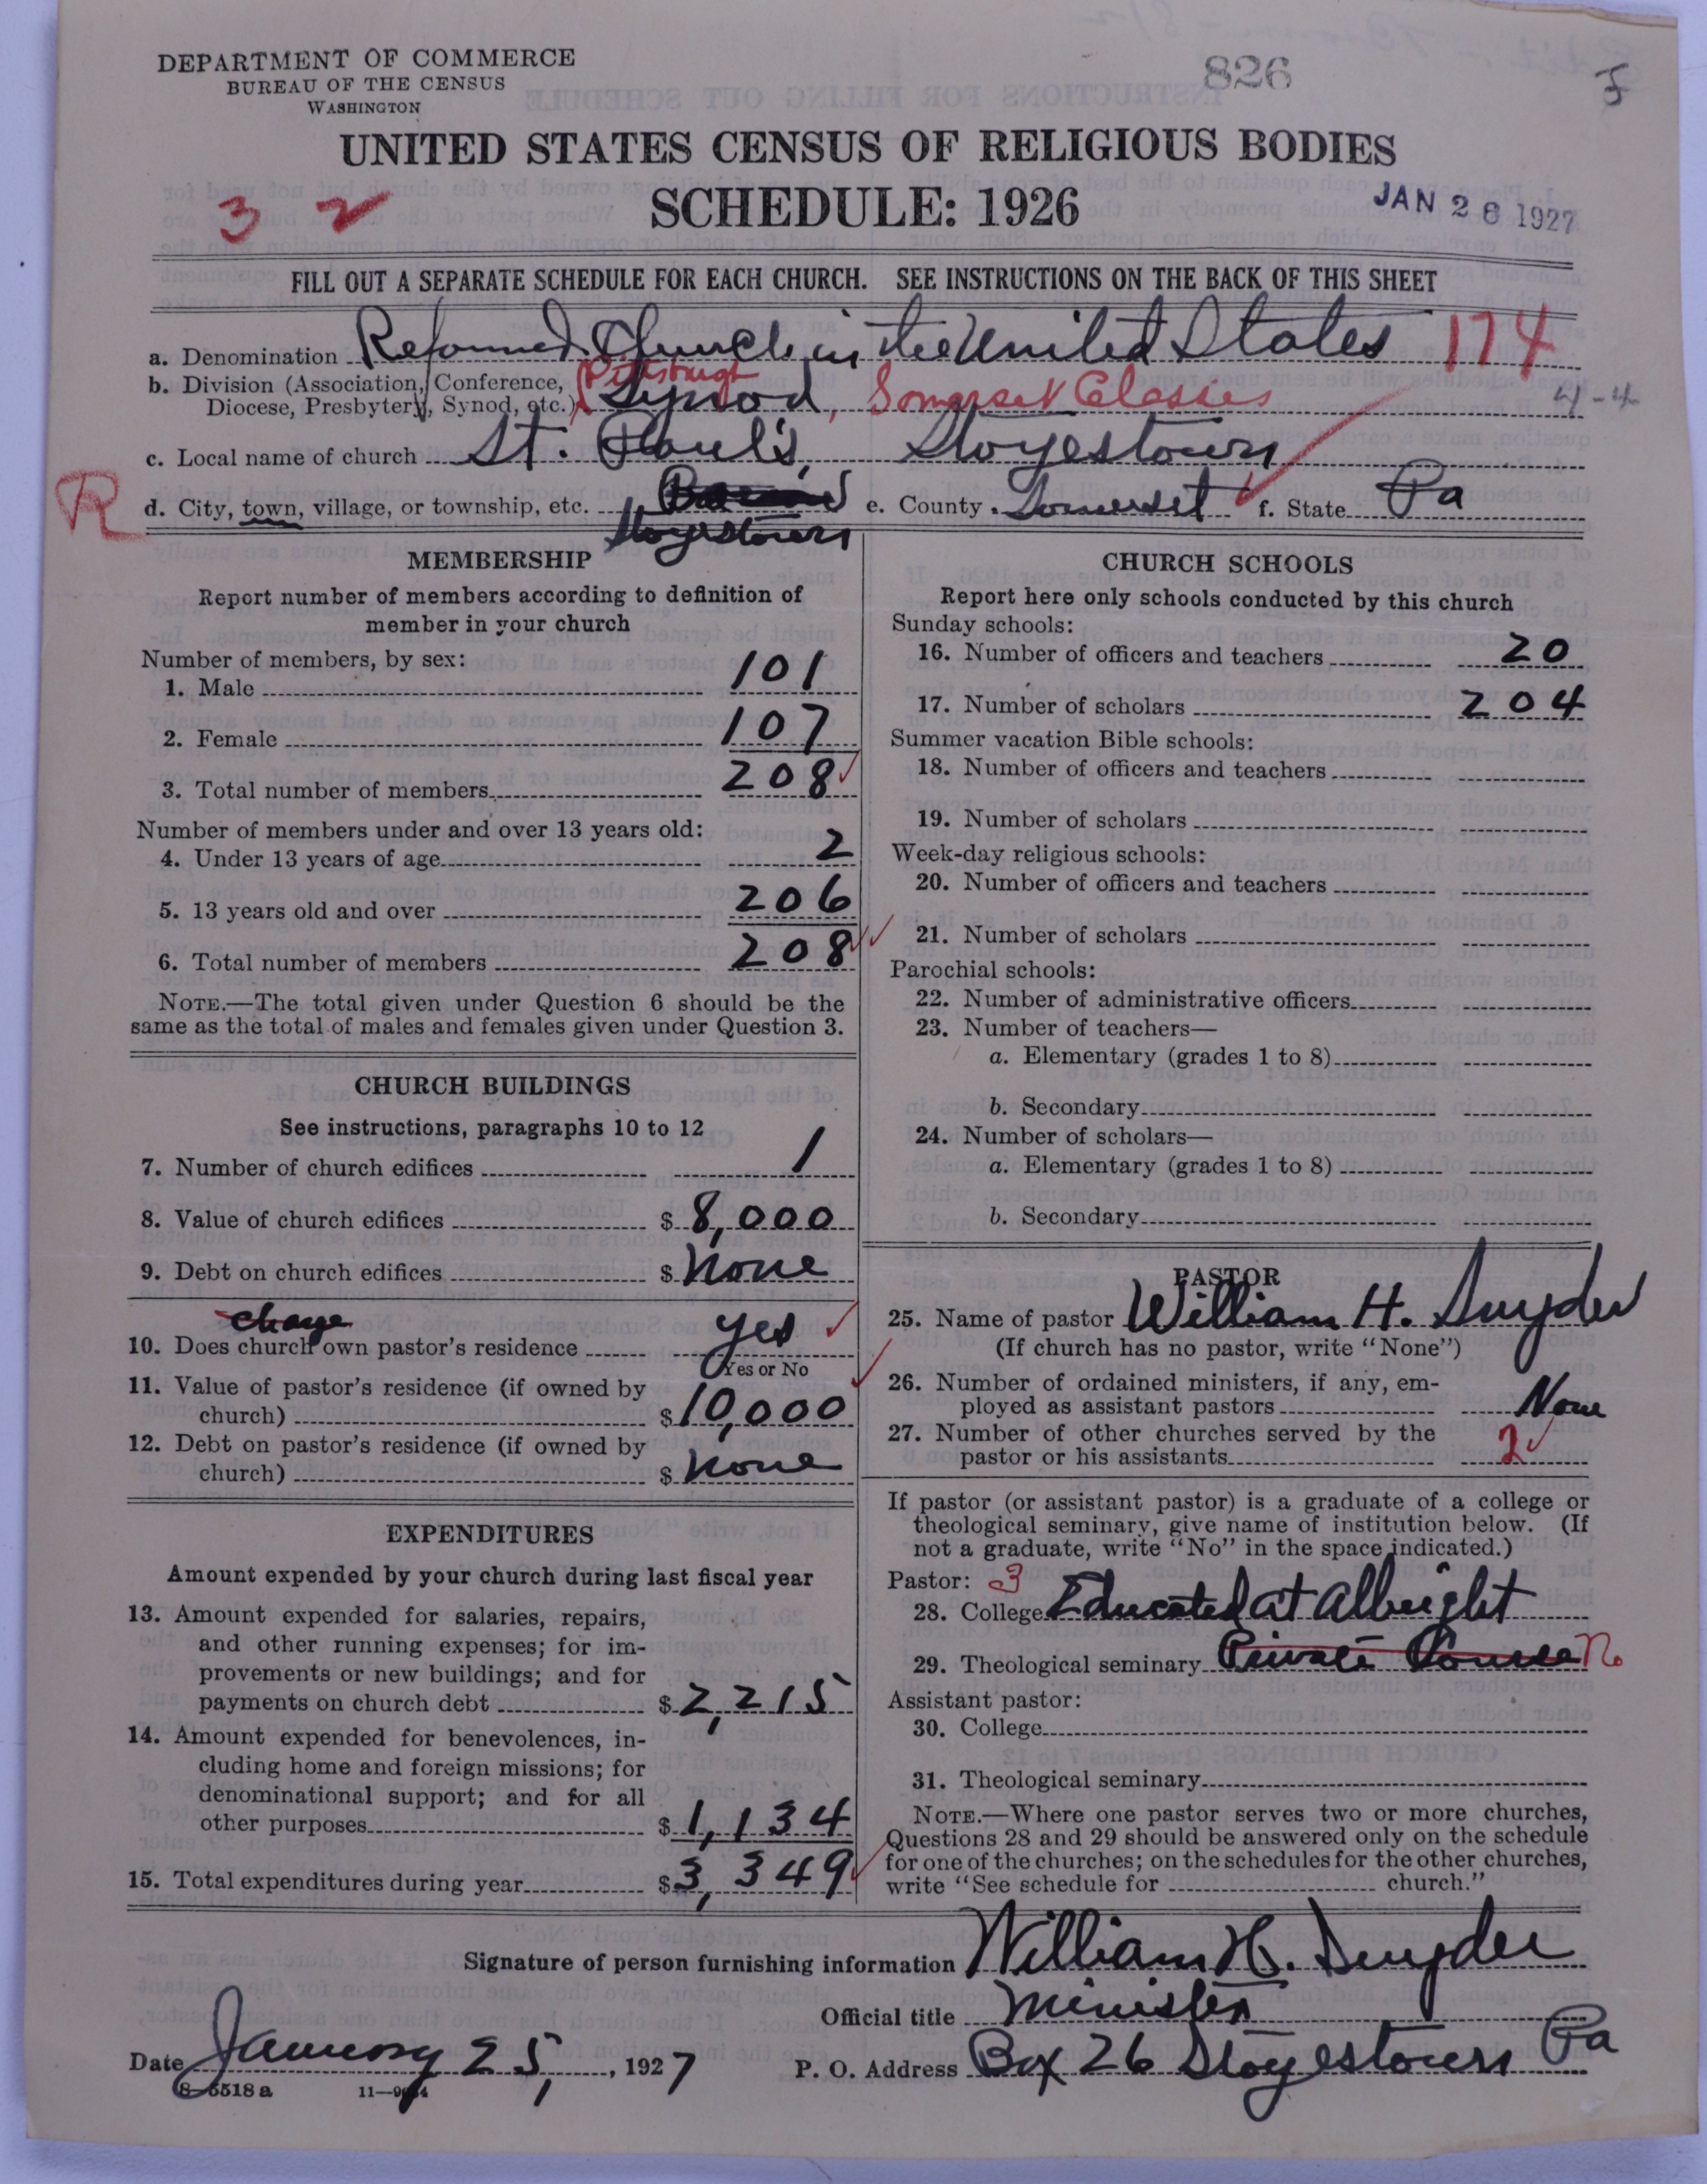 DEPARTMENT OF COMMERCE
BUREAU OF THE CENSUS
WASHINGTON
826
UNITED STATES CENSUS OF RELIGIOUS BODIES
SCHEDULE: 1926
3 2
JAN 26 1927
FILL OUT A SEPARATE SCHEDULE FOR EACH CHURCH. SEE INSTRUCTIONS ON THE BACK OF THIS SHEET
a. Denomination Reformed Church in the United States 174
b. Division (Association, Conference, Diocese, Presbytery, Synod, etc.) Pittsburgh Synod, Somerset Classis 4-4
c. Local name of church St. Paul's, Stoyestown
R
d. City, town, village, or township, etc. Stoyestown e. County Somerset f. State Pa
MEMBERSHIP
Report number of members according to definition of
member in your church
Number of members, by sex:
1. Male 101
2. Female 107
3. Total number of members 208
Number of members under and over 13 years old:
4. Under 13 years of age 2
5. 13 years old and over 206
6. Total number of members 208
NOTE.—The total given under Question 6 should be the
same as the total of males and females given under Question 3.
CHURCH BUILDINGS
See instructions, paragraphs 10 to 12
7. Number of church edifices 1
8. Value of church edifices $ 8,000
9. Debt on church edifices $ None
charge
10. Does church own pastor's residence yes
Yes or No
11. Value of pastor's residence (if owned by
church) $ 10,000
12. Debt on pastor's residence (if owned by
church) $ None
EXPENDITURES
Amount expended by your church during last fiscal year
13. Amount expended for salaries, repairs,
and other running expenses; for im-
provements or new buildings; and for
payments on church debt $ 2,215
14. Amount expended for benevolences, in-
cluding home and foreign missions; for
denominational support; and for all
other purposes $ 1,134
15. Total expenditures during year $ 3,349
CHURCH SCHOOLS
Report here only schools conducted by this church
Sunday schools:
16. Number of officers and teachers 20
17. Number of scholars 204
Summer vacation Bible schools:
18. Number of officers and teachers
19. Number of scholars
Week-day religious schools:
20. Number of officers and teachers
21. Number of scholars
Parochial schools:
22. Number of administrative officers
23. Number of teachers—
a. Elementary (grades 1 to 8)
b. Secondary
24. Number of scholars—
a. Elementary (grades 1 to 8)
b. Secondary
PASTOR
25. Name of pastor William H. Snyder
(If church has no pastor, write "None")
26. Number of ordained ministers, if any, em-
ployed as assistant pastors None
27. Number of other churches served by the
pastor or his assistants 2
If pastor (or assistant pastor) is a graduate of a college or
theological seminary, give name of institution below. (If
not a graduate, write "No" in the space indicated.)
Pastor: 3
28. College Educated at Albright
29. Theological seminary Private Course No
Assistant pastor:
30. College
31. Theological seminary
NOTE.—Where one pastor serves two or more churches,
Questions 28 and 29 should be answered only on the schedule
for one of the churches; on the schedules for the other churches,
write "See schedule for church."
Signature of person furnishing information William H. Snyder
Official title Minister
Date January 25, 1927 P. O. Address Box 26 Stoyestown Pa
8—5518 a